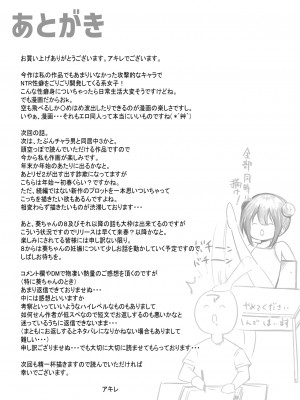 あとがき
お買い上げありがとうございます、アキレでございます。
今作は私の作品でもあまりいなかった攻撃的なキャラで
NTR性癖をごりごり開発してくる系女子!
こんな性癖身についちゃったら日常生活大変そうですけどね。
でも漫画だからおk。
空も飛べるしか〇めはめ波出したりできるのが漫画の楽しさですし。
いやぁ、漫画・・・それもエロ同人って本当にいいものですね(*´艸`)
次回の話。
次は、たぶんチャラ男と同居中3かと。
頭空っぽで読んでいただける作品ですので
今から私も作画が楽しみです。
年末か年始のあたりに出るかなと。
あとリゼ2が出す出す詐欺になってますが
こちらは年始~初春くらい?ですかね。
ただ、続編ではない新作のプロットを一本思いついちゃって
こっちも描きたい欲もあるんですよ。
相変わらず描きたいものが渋滞しております・・・
あと、葵ちゃんのB及びそれ以降の話も大枠は出来てるのですが
こういう状況ですのでリリースは早くて来春?以降かなと。
楽しみにされてる皆様には申し訳ない限り。
Bからは葵ちゃんの妊娠について少しお話動かしていく予定ですので、
しばしお待ちを。
コメント欄やDMで物凄い熱量のご感想を頂くのですが
(特に葵ちゃんのとき)
あまり返信できておりませぬ・・・
中には感想といいますか
考察といっていいようなハイレベルなものもありまして
如何せん作者が低スペなので短文でお返しするのも愚かなと
迷っているうちに返信できないまま・・・
(まともにお返しするとネタバレになりかねない場合もありまして
難しい・・・)
申し訳ございませぬ・・・でも大切に大切に読ませてもらっております・・・
次回も精一杯描きますので読んでいただければ
幸いでございます。
アキレ
全部同時に
描け
やめてください
しんでしまいます